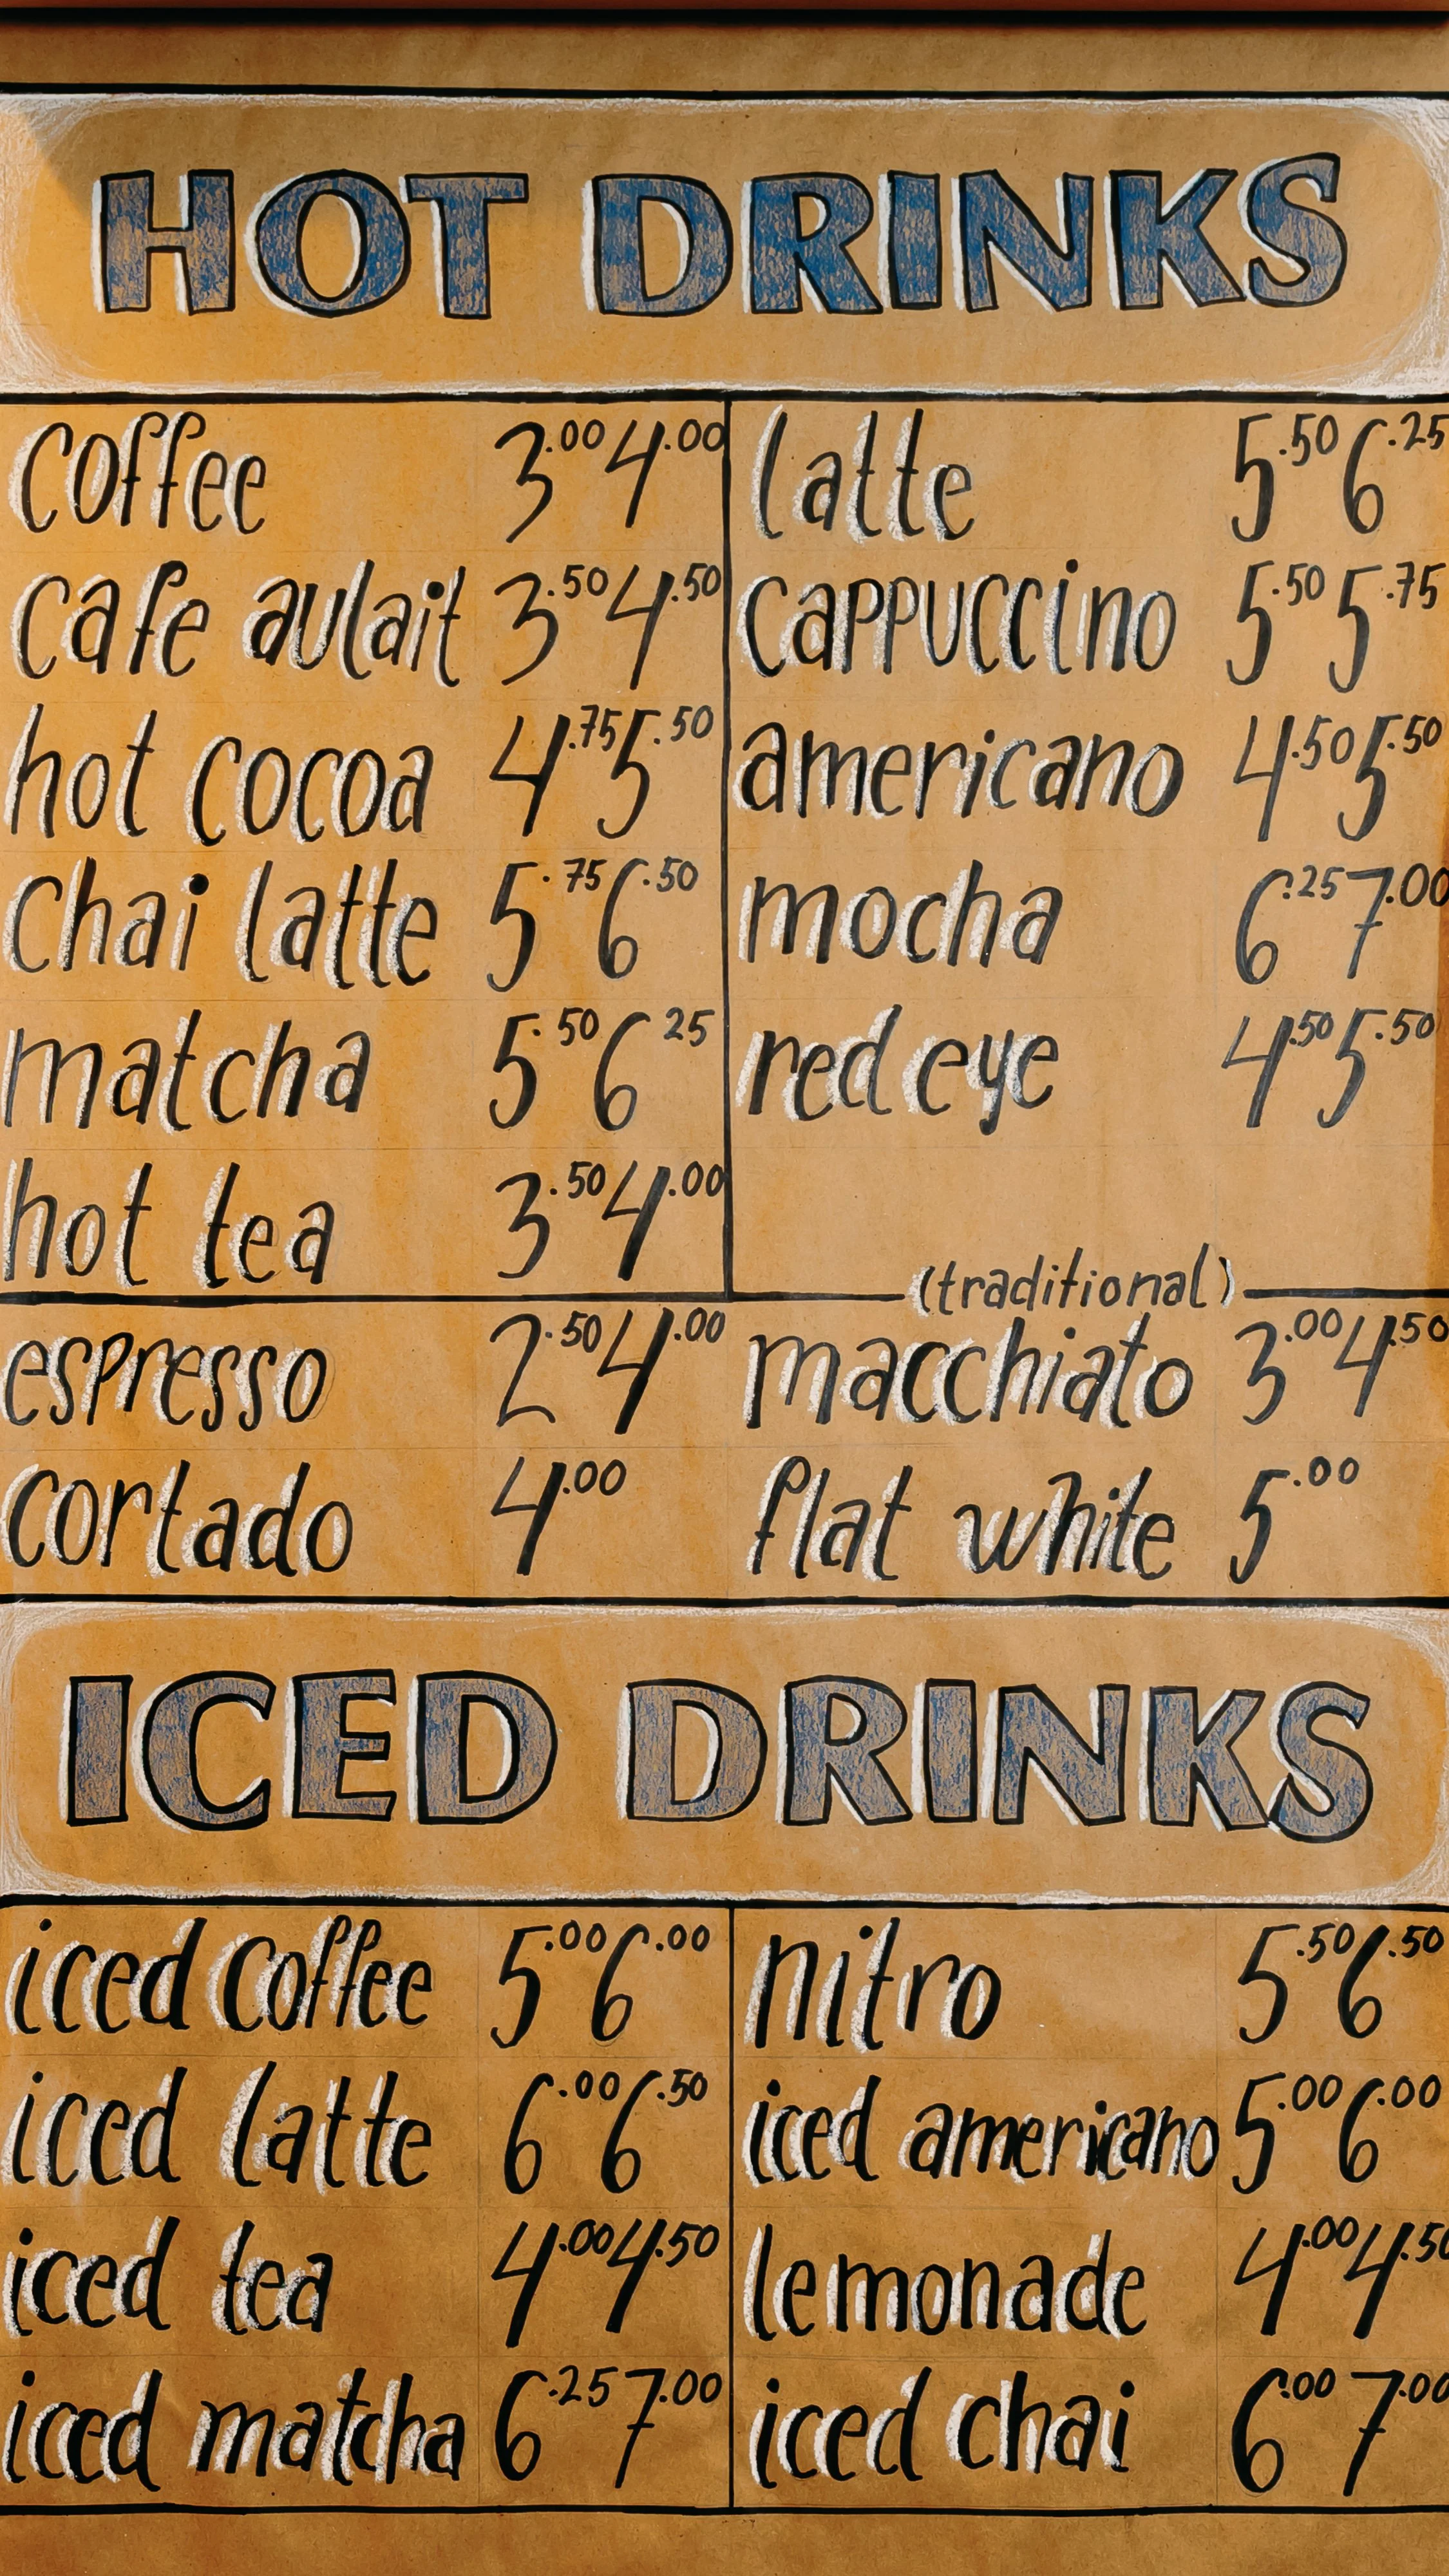 HOT DRINKS
coffee 3.00 4.00
cafe aulait 3.50 4.50
hot cocoa 4.75 5.50
chai latte 5.75 6.50
matcha 5.50 6.25
hot tea 3.50 4.00
latte 5.50 6.25
cappuccino 5.50 5.75
americano 4.50 5.50
mocha 6.25 7.00
red eye 4.50 5.50
espresso 2.50 4.00
cortado 4.00
(traditional)
macchiato 3.00 4.50
flat white 5.00
ICED DRINKS
iced coffee 5.00 6.00
iced latte 6.00 6.50
iced tea 4.00 4.50
iced matcha 6.25 7.00
nitro 5.50 6.50
iced americano 5.00 6.00
lemonade 4.00 4.50
iced chai 6.00 7.00